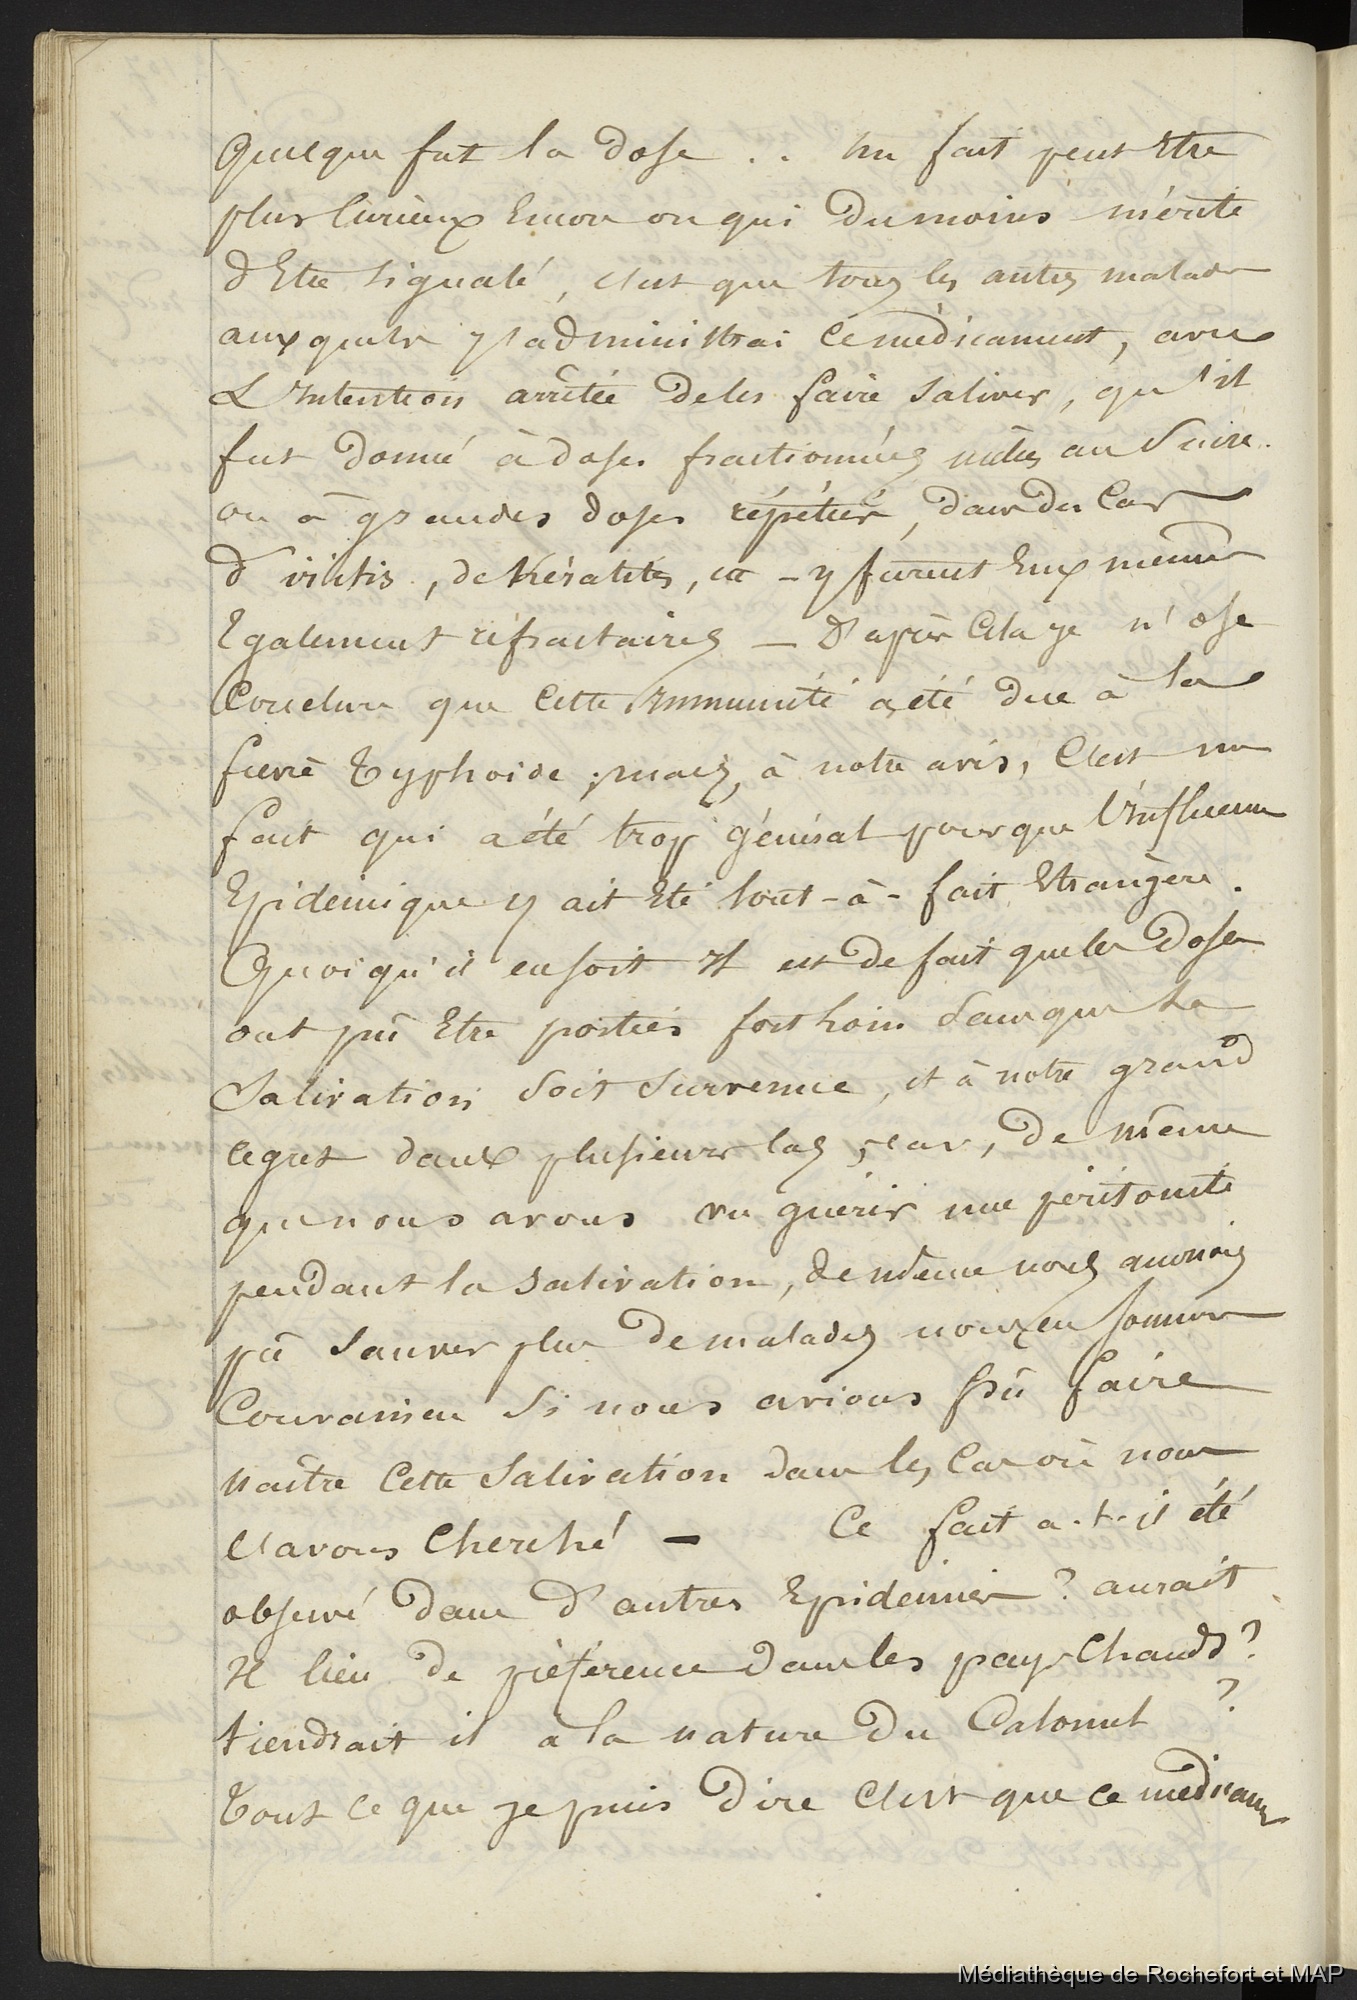 Quelque fut la dose .. un fait peut être
plus curieux Encore ou qui du moins mérite
d'Etre signalé, c'est que tous les autres malades
auxquels j'administrai ce médicament, avec
L'Intention arrêtée de les faire saliver, qu'il
fut donné à doses fractionnées unies au Sucre.
ou à grandes doses répétées, dans des Cas
d'iritis, de Kératites, etc - y furent Eux mêmes
Egalement réfractaires — D'après Cela je n'ose
Conclure que Cette Immunité a été due à la
fièvre Typhoïde ; mais, à notre avis, C'est un
fait qui a été trop général pour que l'influence
Epidémique y ait Eté tout-à-fait Etrangère.
Quoiqu'il en soit Il est de fait que les Doses
ont pû Etre portées fort loin sans que La
Salivation soit survenue, et à notre grand
regret dans plusieurs Cas ; car, de même
que nous avons vu guérir une péritonite
pendant la salivation, de même nous aurions
pû sauver plus de malades nous en sommes
Convaincu Si nous avions Pû faire
naître Cette Salivation dans les Cas où nous
l'avons Cherché — Ce fait a-t-il été
observé dans d'autres Epidémies ? aurait
Il lieu de préférence dans les pays Chauds ?
tiendrait il a la nature du Calomel ?
Tout ce que je puis Dire C'est que ce médicam
Médiathèque de Rochefort et MAP